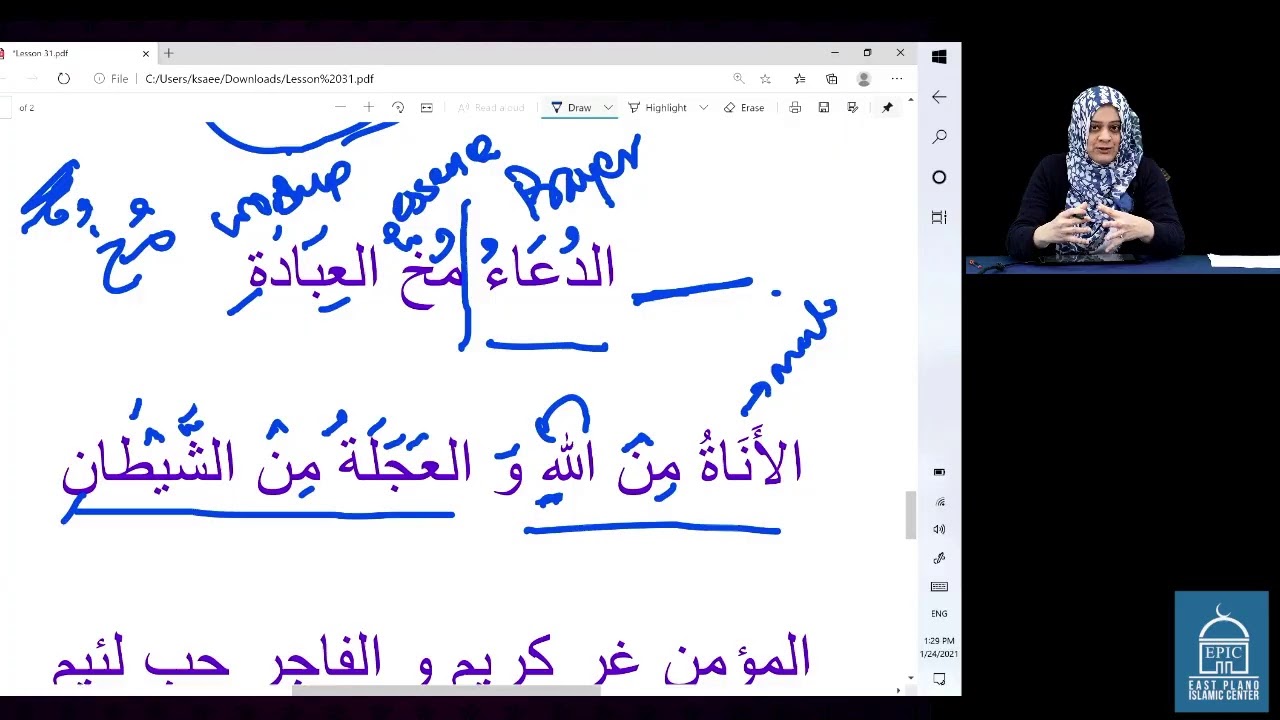 *Lesson 31.pdf
File C:/Users/ksaee/Downloads/Lesson%2031.pdf
of 2 Read aloud Draw Highlight Erase
worship essence Prayer
مخ
الدُعَاءُ مُخ العِبَادَةِ
الأَنَاةُ مِنَ اللهِ وَ العَجَلَةُ مِنَ الشَّيْطَانِ
المؤمن غر كريم و الفاجر حب لئيم
ENG
1:29 PM
1/24/2021
EPIC
EAST PLANO
ISLAMIC CENTER